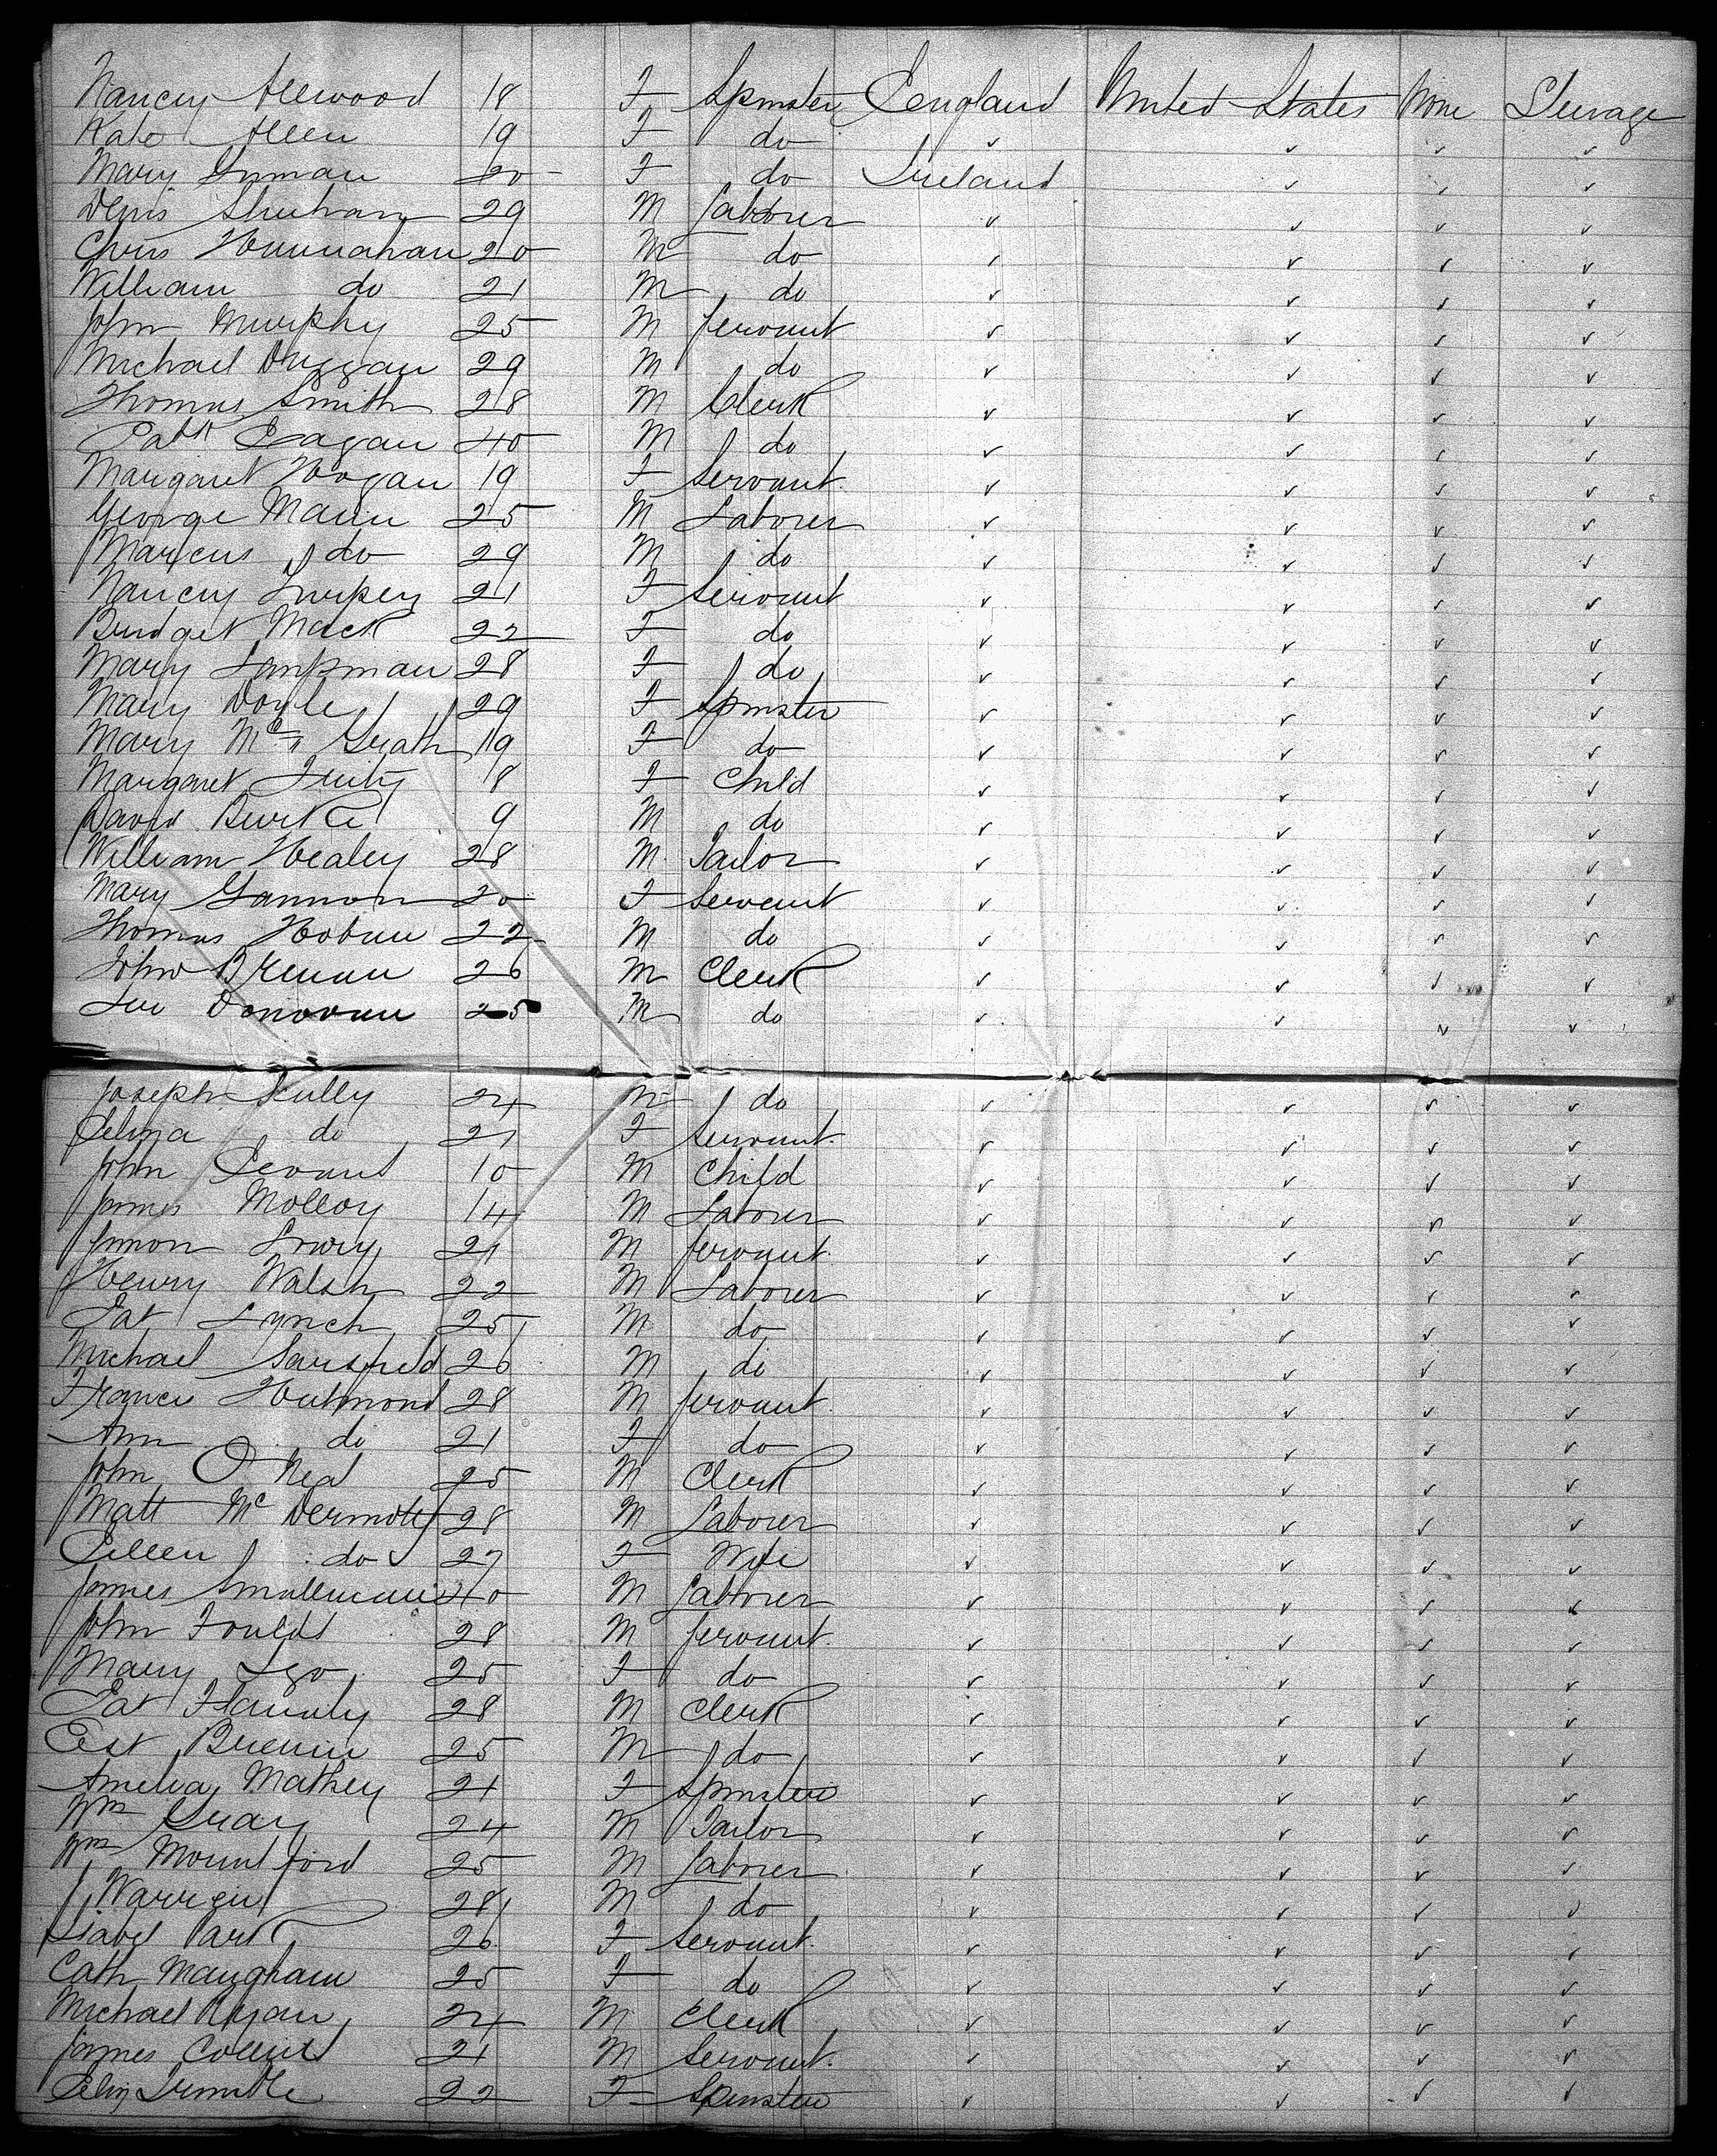 Nancy Allwood 18 F Spinster England United States None Steerage
Kate Allen 19 F do ✓ ✓ ✓ ✓
Mary Inman 20 F do Ireland ✓ ✓ ✓
Denis Shuhan 29 M Laborer ✓ ✓ ✓ ✓
Chris 20 M do ✓ ✓ ✓ ✓
William do 21 M do ✓ ✓ ✓ ✓
John Murphy 25 M Servant ✓ ✓ ✓ ✓
Michael Duggan 29 M do ✓ ✓ ✓ ✓
Thomas Smith 28 M Clerk ✓ ✓ ✓ ✓
Patk Eagan 40 M do ✓ ✓ ✓ ✓
Margaret Hogan 19 F Servant ✓ ✓ ✓ ✓
George Mann 25 M Laborer ✓ ✓ ✓ ✓
Marcus do 29 M do ✓ ✓ ✓ ✓
Nancy 21 F Servant ✓ ✓ ✓ ✓
Bridget Mack 22 F do ✓ ✓ ✓ ✓
Mary 28 F do ✓ ✓ ✓ ✓
Mary Doyle 29 F Spinster ✓ ✓ ✓ ✓
Mary Mc Grath 19 F do ✓ ✓ ✓ ✓
Margaret 8 F Child ✓ ✓ ✓ ✓
David Burke 9 M do ✓ ✓ ✓ ✓
William Healey 28 M Tailor ✓ ✓ ✓ ✓
Mary Gannon 20 F Servant ✓ ✓ ✓ ✓
Thomas Hoban 22 M do ✓ ✓ ✓ ✓
John Brennan 26 M Clerk ✓ ✓ ✓ ✓
Donovan 25 M do ✓ ✓ ✓ ✓
Joseph Skully 24 M do ✓ ✓ ✓ ✓
do 21 F Servant ✓ ✓ ✓ ✓
John 10 M Child ✓ ✓ ✓ ✓
James Molloy 14 M Laborer ✓ ✓ ✓ ✓
Simon Lowry 21 M Servant ✓ ✓ ✓ ✓
Henry Walsh 22 M Laborer ✓ ✓ ✓ ✓
Pat Lynch 25 M do ✓ ✓ ✓ ✓
Michael Sarsfield 26 M do ✓ ✓ ✓ ✓
Francis 28 M Servant ✓ ✓ ✓ ✓
Ann do 21 F do ✓ ✓ ✓ ✓
John O Neal 25 M Clerk ✓ ✓ ✓ ✓
Matt Mc Dermott 28 M Laborer ✓ ✓ ✓ ✓
Ellen do 27 F Wife ✓ ✓ ✓ ✓
James Smallman 40 M Laborer ✓ ✓ ✓ ✓
John Foulds 28 M Servant ✓ ✓ ✓ ✓
Mary Igo 25 F do ✓ ✓ ✓ ✓
Pat Flannily 28 M Clerk ✓ ✓ ✓ ✓
Pat Brennin 25 M do ✓ ✓ ✓ ✓
Amelia Mathey 21 F Spinster ✓ ✓ ✓ ✓
Wm Gray 24 M Tailor ✓ ✓ ✓ ✓
Wm Mountford 25 M Laborer ✓ ✓ ✓ ✓
J Warren 28 M do ✓ ✓ ✓ ✓
Isabel Park 26 F Servant ✓ ✓ ✓ ✓
Cath Maugham 25 F do ✓ ✓ ✓ ✓
Michael Ryan 24 M Clerk ✓ ✓ ✓ ✓
James Collins 21 M Servant ✓ ✓ ✓ ✓
Eliz Trimble 22 F Spinster ✓ ✓ ✓ ✓